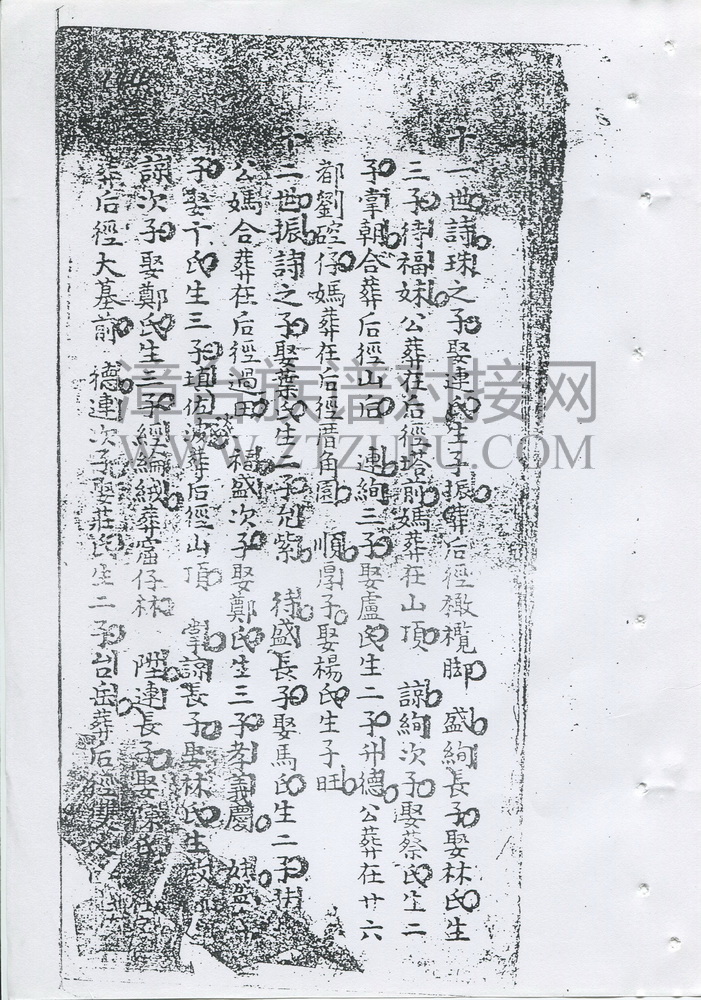 十一世詩珠之子娶連氏生子振葬后徑橄欖脚 盛絢長子娶林氏生
三子待福妹公葬在后徑塔前媽葬在山頂 諒絢次子娶蔡氏生二
子掌朝合葬后徑山后 連絢三子娶盧氏生二子升德公葬在廿六
都劉硿仔媽葬在后徑厝角園 順厚子娶楊氏生子旺
十二世振詩之子娶葉氏生二子允紫 待盛長子娶馬氏生二子
公媽合葬在后徑過田 福盛次子娶鄭氏生三子孝義慶
子娶氏生三子瑱佐波葬后徑山頂 掌諒長子娶林氏生
諒次子娶鄭氏生二子經綸絨葬窟仔林 陞連長子娶陳氏
葬后徑大墓前 德連次子娶莊氏生二子台岳葬后徑
漳台族谱对接网
WWW.ZTZUPU.COM